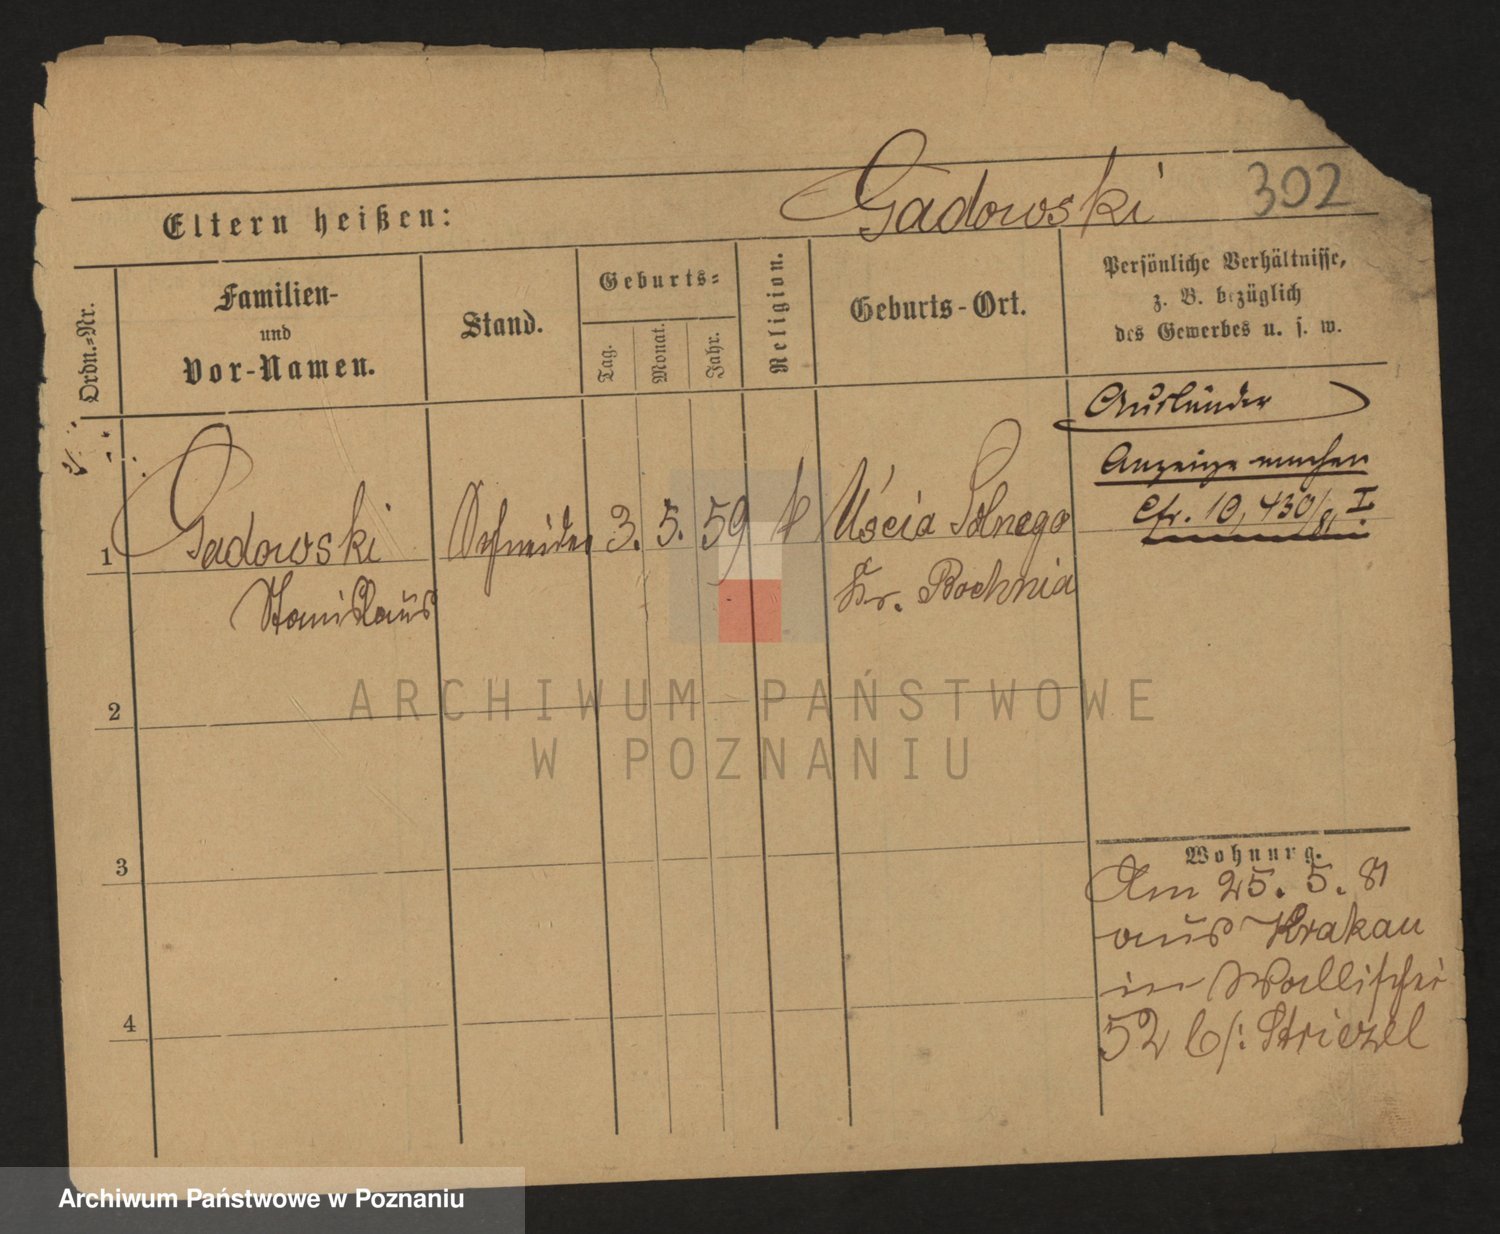 Gadowski
302
Eltern heißen:
Ordn.-Nr.
Familien-
und
Vor-Namen.
Stand.
Geburts-
Tag.
Monat.
Jahr.
Religion.
Geburts-Ort.
Persönliche Verhältnisse,
z. B. bezüglich
des Gewerbes u. s. w.
Ausländer
Anzeige machen
Cfr. 10,430/81 I.
1
Gadowski
Stanislaus
Schneider
3.
5.
59
k
Uścia Solnego
Kr. Bochnia
2
3
4
Wohnung.
Am 25. 5. 81
aus Krakau
in Wallischei
52 b/: Striezel
ARCHIWUM PAŃSTWOWE
W POZNANIU
Archiwum Państwowe w Poznaniu